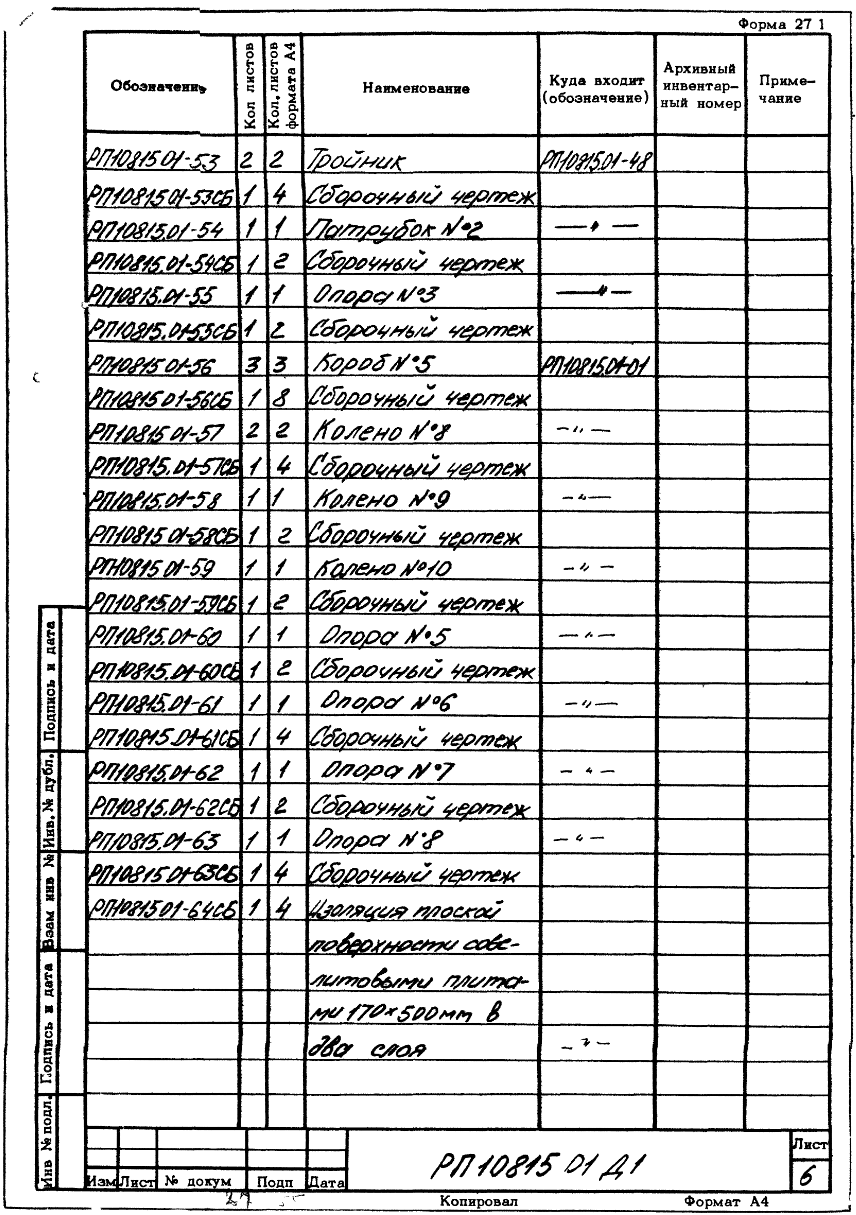 Форма 27 1
Обозначение
Кол листов
Кол. листов формата А4
Наименование
Куда входит (обозначение)
Архивный инвентарный номер
Примечание
РП10815 01-53 2 2 Тройник РП10815.01-48
РП10815 01-53СБ 1 4 Сборочный чертеж
РП10815.01-54 1 1 Патрубок №2 —〃—
РП10815.01-54СБ 1 2 Сборочный чертеж
РП10815.01-55 1 1 Опора №3 —〃—
РП10815.01-55СБ 1 2 Сборочный чертеж
РП10815 01-56 3 3 Короб №5 РП10815.01-01
РП10815 01-56СБ 1 8 Сборочный чертеж
РП10815 01-57 2 2 Колено №8 —〃—
РП10815.01-57СБ 1 4 Сборочный чертеж
РП10815.01-58 1 1 Колено №9 —〃—
РП10815 01-58СБ 1 2 Сборочный чертеж
РП10815 01-59 1 1 Колено №10 —〃—
РП10815.01-59СБ 1 2 Сборочный чертеж
РП10815.01-60 1 1 Опора №5 —〃—
РП10815.01-60СБ 1 2 Сборочный чертеж
РП10815.01-61 1 1 Опора №6 —〃—
РП10815.01-61СБ 1 4 Сборочный чертеж
РП10815.01-62 1 1 Опора №7 —〃—
РП10815.01-62СБ 1 2 Сборочный чертеж
РП10815.01-63 1 1 Опора №8 —〃—
РП10815 01-63СБ 1 4 Сборочный чертеж
РП10815 01-64СБ 1 4 Изоляция плоской
поверхности сове-
литовыми плита-
ми 170×500мм в
два слоя —〃—
Подпись и дата
Инв. № дубл.
Взам инв №
Подпись и дата
Инв № подл.
Изм Лист № докум Подп Дата
РП10815 01 Д1
Лист
6
Копировал
Формат А4